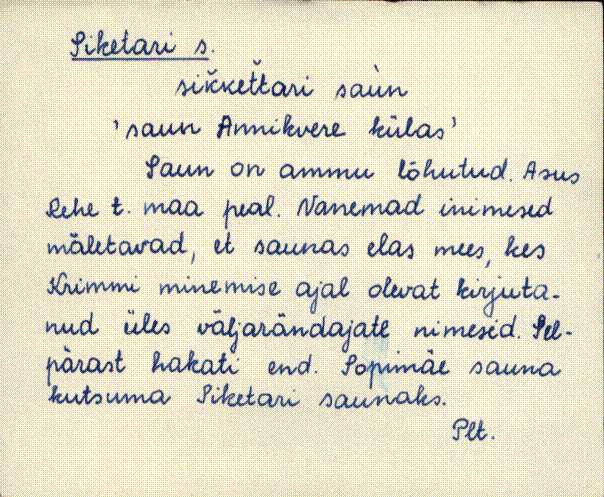 Siketari s.
sik̆ket̆tari saùn
'saun Annikvere külas'
Saun on ammu lõhutud. Asus
Rehe t. maa peal. Vanemad inimesed
mäletavad, et saunas elas mees, kes
Krimmi minemise ajal olevat kirjuta-
nud üles väljarändajate nimesid. Sel-
pärast hakati end. Sopimäe sauna
kutsuma Siketari saunaks.
Plt.